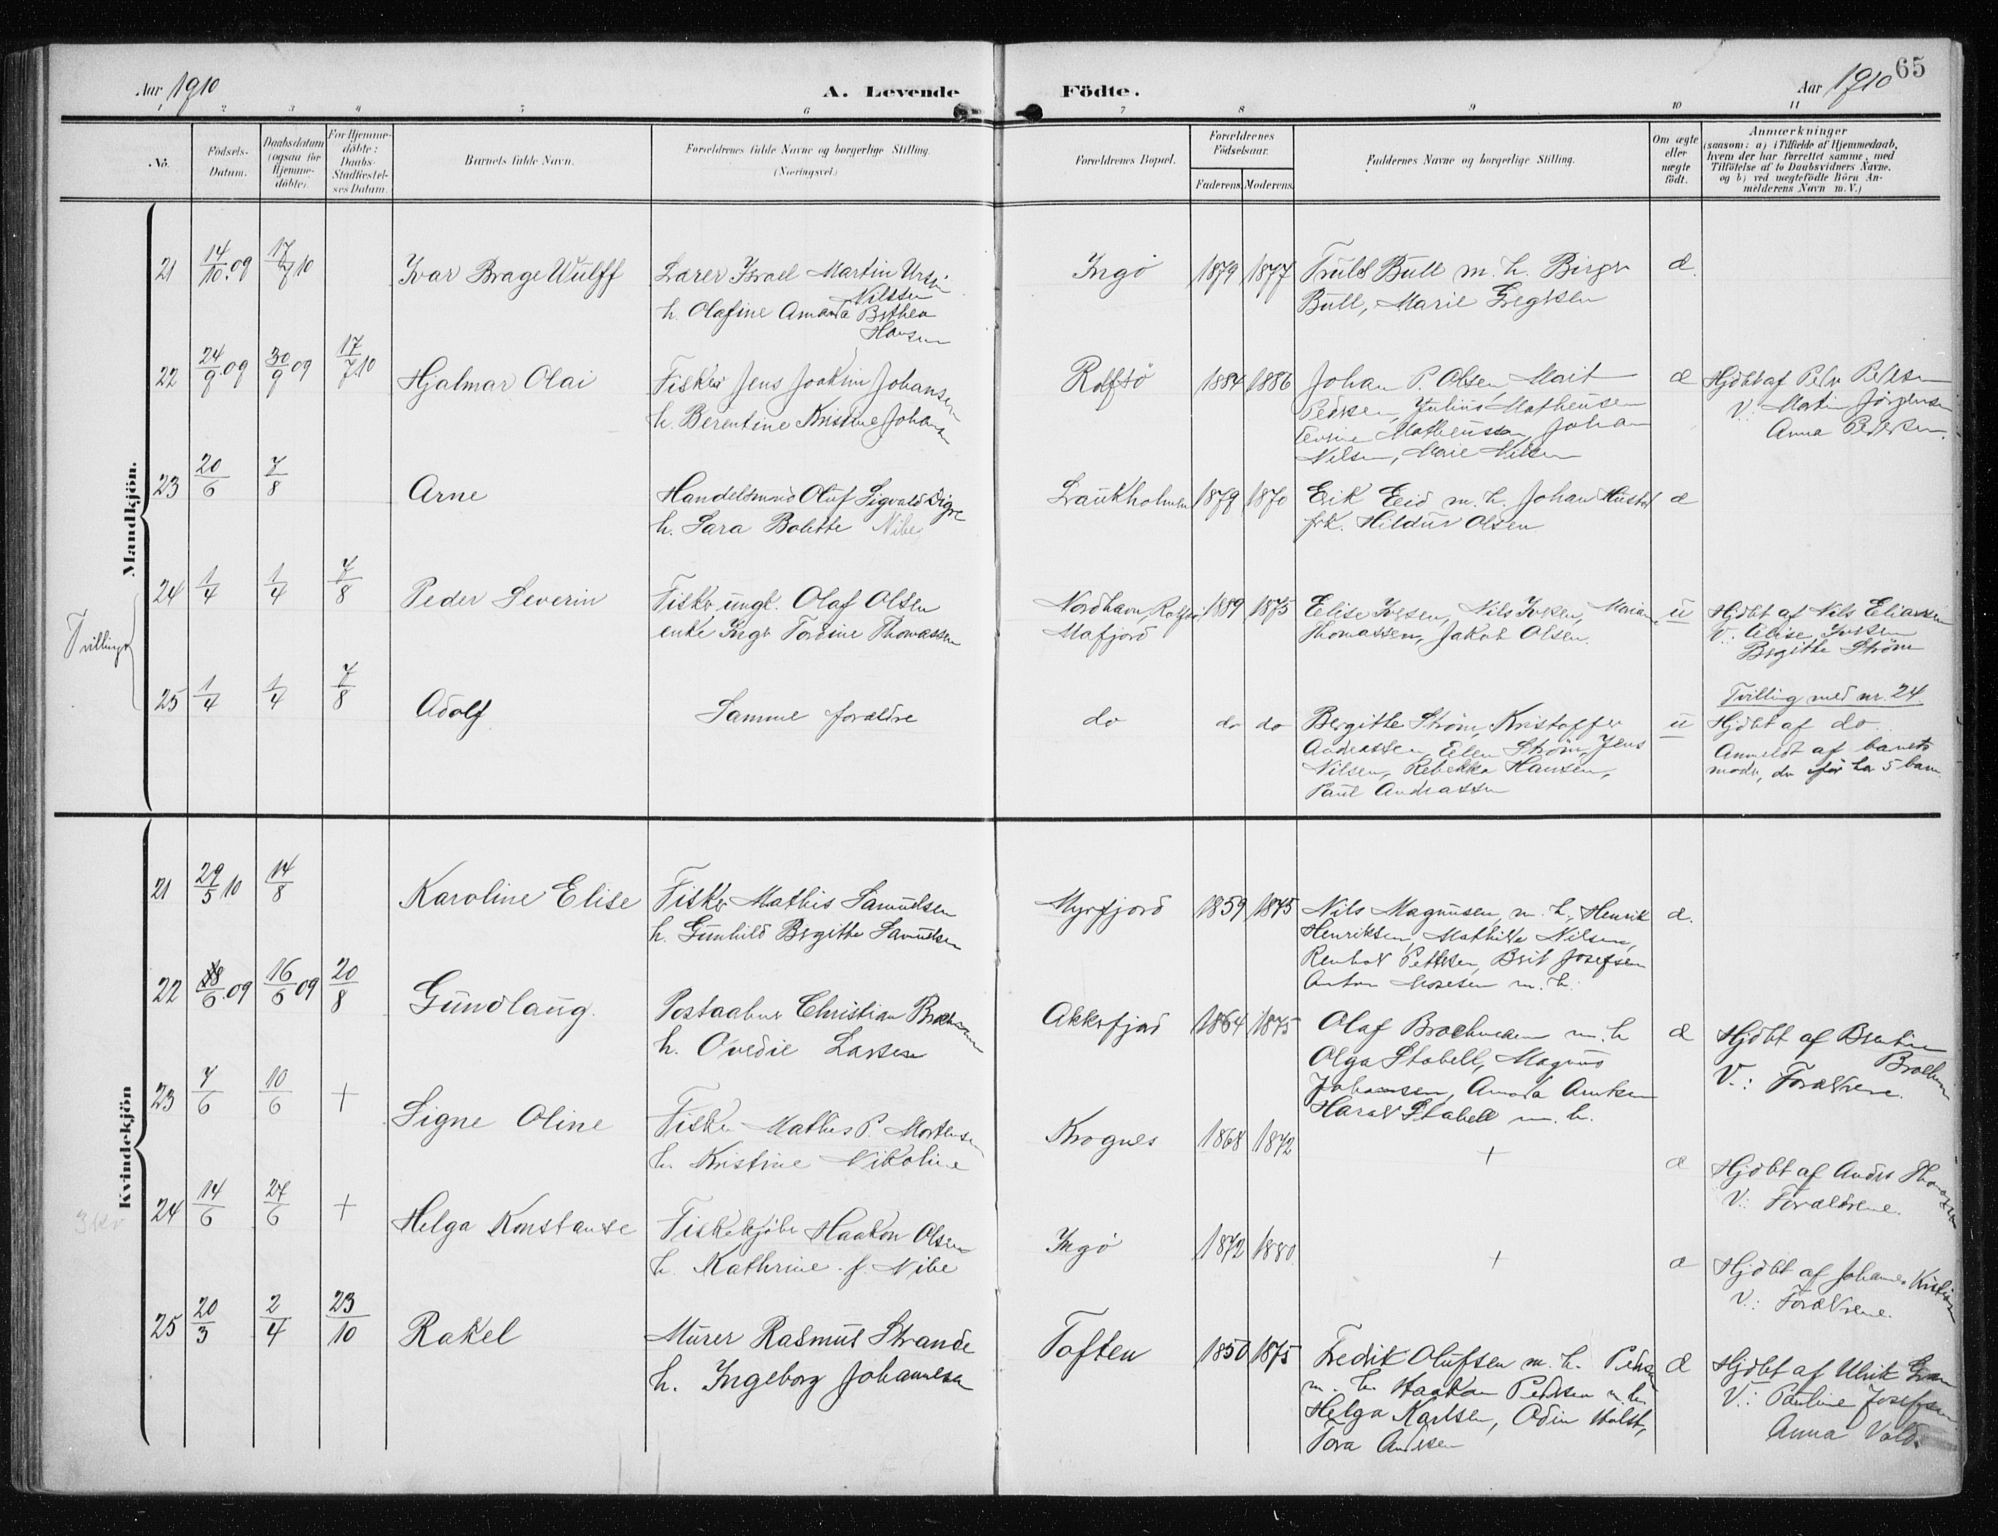 65
Aar 1910
A. Levende Födte.
Aar 1910
1 2 3 4 5 6 7 8 9 10 11
No.
Fødsels-
Datum.
Daabsdatum
(ogsaa for
Hjemme-
døbte).
For Hjemme-
døbte:
Daabs-
Stadfæstel-
ses Datum.
Barnets fulde Navn.
Forældrenes fulde Navne og borgerlige Stilling.
(Næringsvei.)
Forældrenes Bopæl.
Forældrenes
Fødselsaar.
Faderens. Moderens.
Faddernes Navne og borgerlige Stilling.
Om ægte
eller
uægte
født.
Anmærkninger
(saasom: a) i Tilfælde af Hjemmedaab,
hvem der har forrettet samme, med
Tilføielse af to Daabsvidners Navne,
og b) ved uægtefødte Börn An-
melderens Navn m. V.)
Mandkjön.
21 14/10.09 17/7 10 Ivar Brage Wulff
Lærer Israel Martin
Nilssen
h. Olafine Amanda
Hansen
Ingö 1879 1877
Truls Bull m. h. Birger
Bull, Marie
æ.
22 24/9.09 30/9 09 17/7.10 Hjalmar Olai
Fisker Jens Joakim Johansen
h. Berentine Kristine Johan
Rolfsö 1884 1886
Johan P. Olsen, Marit
Pedersen, Julius Matheusen
Matheussen, Johan
Nilsen, Marie Nilsen
æ
Hjdbt af Peder Pedersen
V: Martin Jørgensen
Anna Pedersen.
23 20/6 7/8 Arne
Handelsmand Oluf Sigvald Digre
h. Sara Bolette Nibe
Laukholmen 1879 1870
Erik Eid m. h. Johan
frk. Hildur Olsen
æ
Tvillinger
24 1/4 1/4 7/8 Peder Severin
Fisker ungk. Olaf Olsen
enke Inger Tordine Thomassen
Nordhavn, Rolfsö
Mafjord
1889 1875
Elise Iversen, Nils Iversen, Marian
Thomassen, Jakob Olsen.
u
Hjdbt af Nils Eliassen
V: Elise Iversen
Bergitte Strøm
25 1/4 1/4 7/8 Adolf
Samme forældre
do do do
Bergitte Strøm, Kristoffer
Andreassen, Ellen Strøm, Jens
Nilsen, Rebekka Hansen,
Paul Andreassen
u
Tvilling med nr. 24
Hjdbt af do.
Anmeldt af barnets
moder, der før har 5 barn.
Kvindekjön
21 29/5 10 14/8 Karoline Elise
Fisker Mathis Samuelsen
h. Gunhild Bergitte Samuelsen
Myrfjord 1859 1875
Nils Magnusen, m. h., Henrik
Henriksen, Mathilde Nilsen,
Renhart Pettersen, Berit Josefsen
Anton m. h.
æ.
22 18/6.09 16/6 09 20/8 Gundlaug.
Postaabner Christian
h. Ovedie Larsen
Akkerfjord 1864 1875
Olaf Brochmann m. h
Olga Stabell, Magnus
Johansen, Amanda Arntsen
Harald Stabell m. h.
æ
Hjdbt af
Brochm
V.: Forældrene.
23 7/6 10/6 + Signe Oline
Fisker Mathis P. Mortensen
h. Kristine Nikoline
Krognes 1868 1872
+
æ
Hjdbt af Anders Thomassen
V: Forældrene.
3 kv
24 14/6 27/6 + Helga Konstanse
Fiskekjøber Haakon Olsen
h. Kathrine f. Nibe
Ingö 1872 1880
+
æ
Hjdbt af Johannes
V.: Forældrene.
25 20/3 2/4 23/10 Rakel
Murer Rasmus Strande
h. Ingeborg Johannesen
Toften 1850 1875
Fredrik Olufsen m. h.
m. h. Haakon Pedersen m. h.
Helga Karlsen, Odin Holst,
Tora Andersen
æ
Hjdbt af Ulrik
V.: Pauline Josefsen
Anna